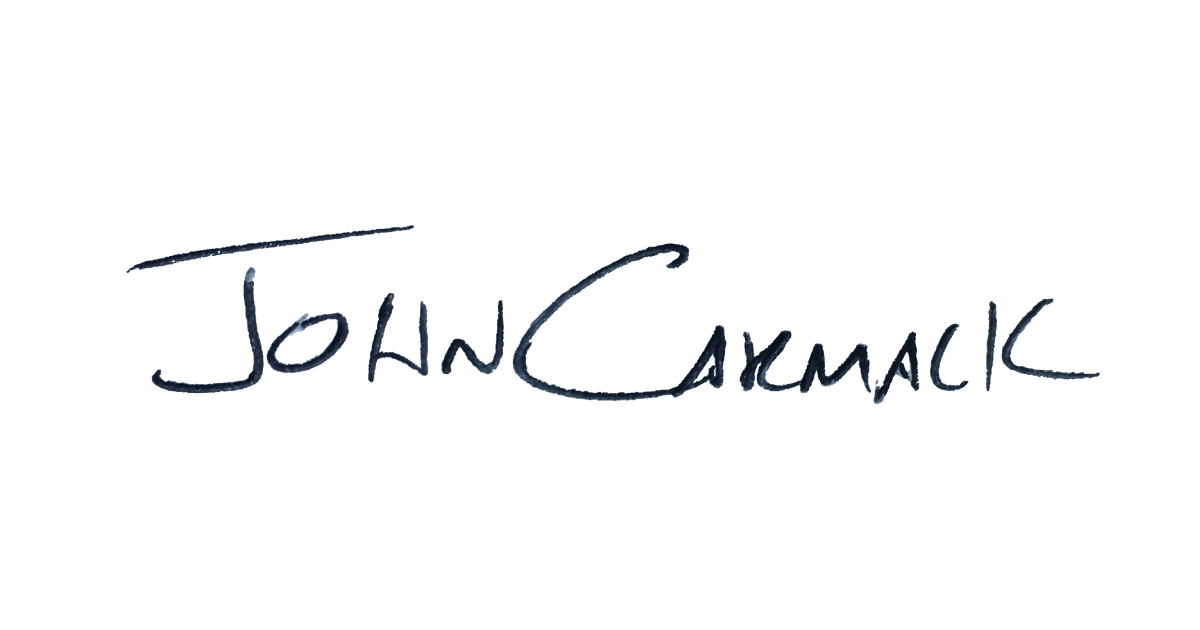 JOHN CARMACK